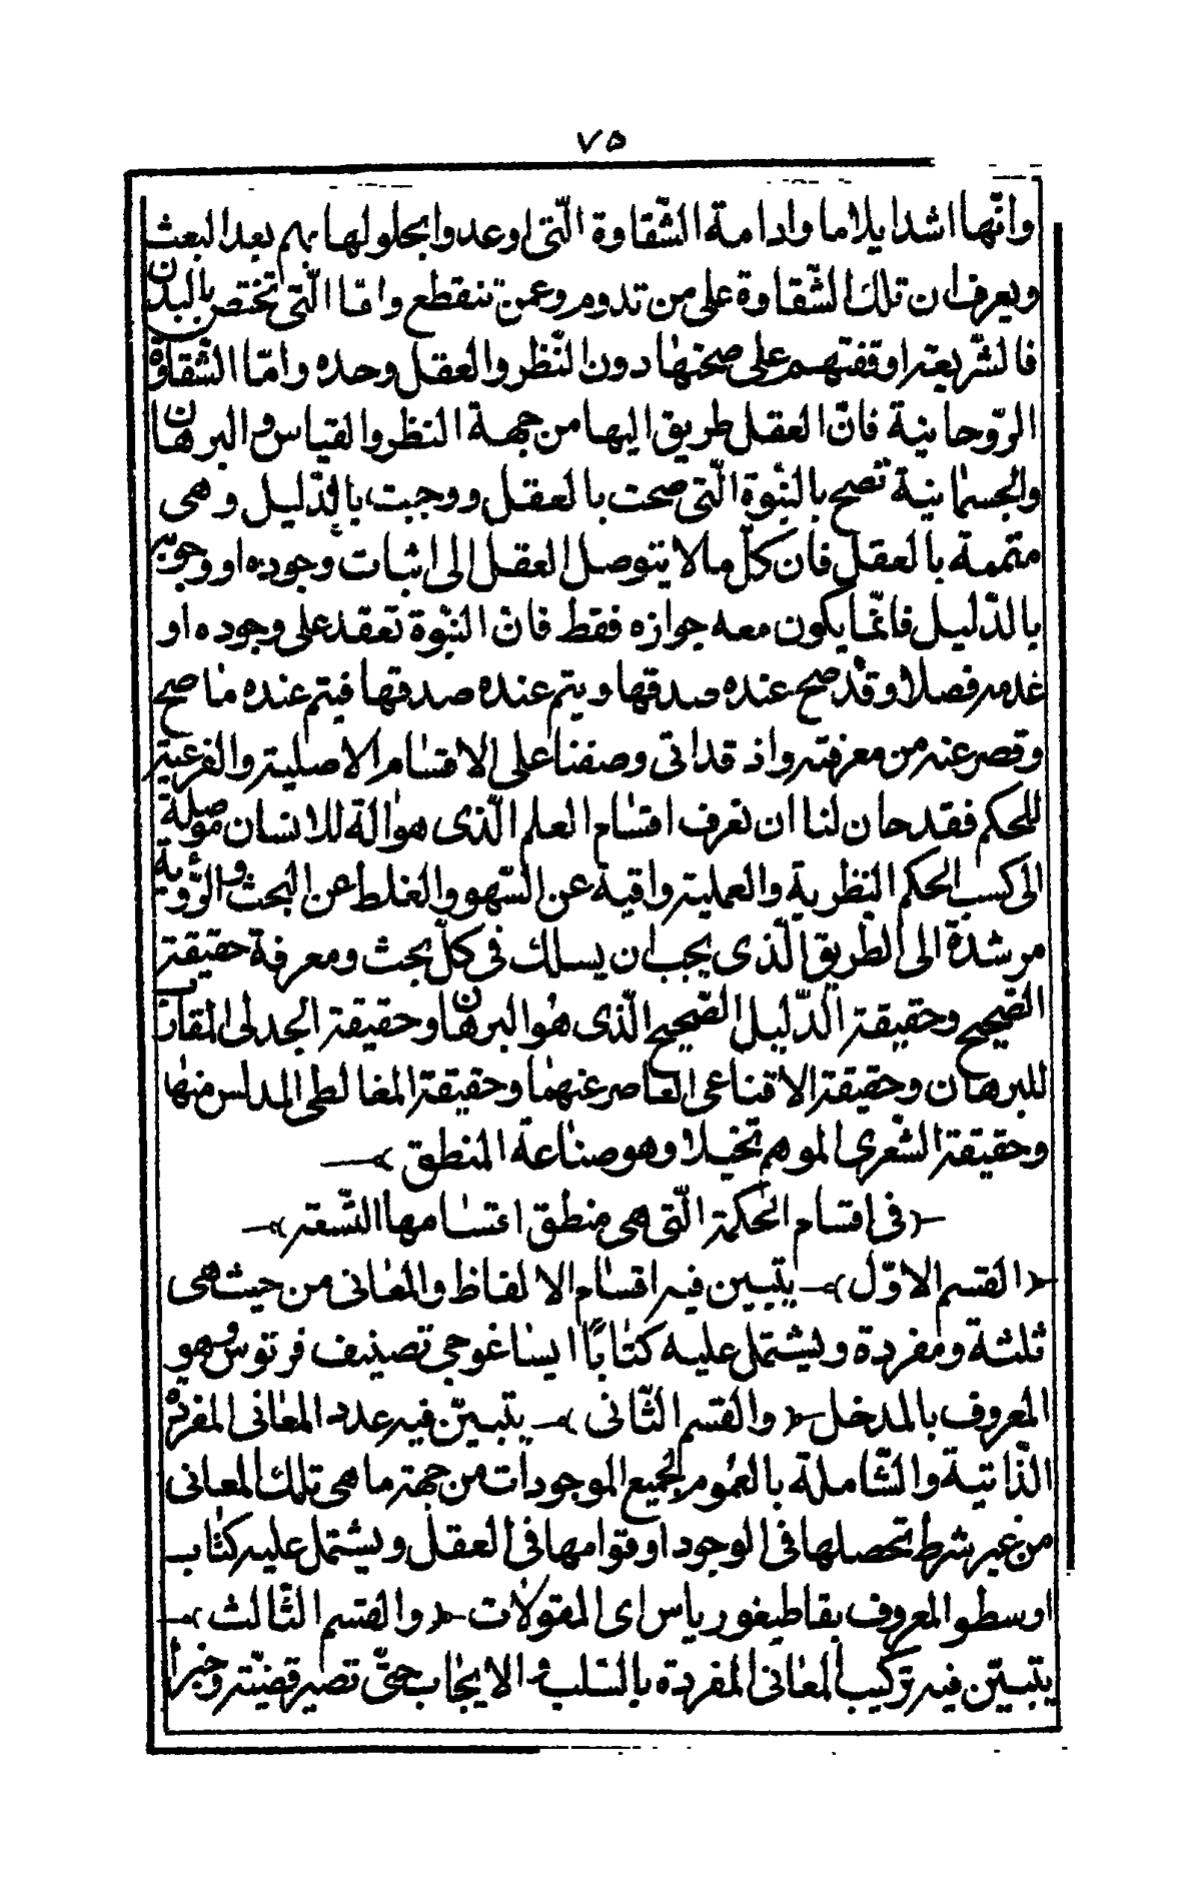 ٧٥
وانّها اشد ايلاما وادامة الشّقاوة الّتى اوعدوا بحلولها بهم بعد البعث
ويعرف ان تلك الشّقاوة على من تدوم وعمن تنقطع وامّا الّتى تختص بالبدن
فالشّريعة اوقفتهم على صحتها دون النّظر والعقل وحده وامّا الشّقاوة
الرّوحانية فانّ العقل طريق اليها من جهة النظر والقياس والبرهان
والجسمانية تصح بالنبّوة الّتى صحت بالعقل ووجبت بالدّليل وهى
متممة بالعقل فان كلّ ما لا يتوصل العقل الى اثبات وجوده او وجوبه
بالدّليل فانمّا يكون معه جوازه فقط فان النبّوة تعقد على وجوده او
عدمه فصلا وقد صح عنده صدقها ويتم عنده صدقها فيتم عنده ما صح
وقصر عنه من معرفته واذ قد اتى وصفنا على الاقسام الاصلية والفرعية
للحكم فقد حان لنا ان نعرف اقسام العلم الّذى هو الة للانسان موصلة
الى كسب الحكم النظرية والعملية واقية عن السّهو والغلط عن البحث والرّوية
مرشدة الى الطريق الّذى يجب ان يسلك فى كلّ بحث ومعرفة حقيقة
الصّحيح وحقيقة الدّليل الصّحيح الّذى هو البرهان وحقيقة الجدلى المقارب
للبرهان وحقيقة الاقناعى القاصر عنهما وحقيقة المغالطى المدلس منها
وحقيقة الشّعرى الموهم تخيلا وهو صناعة المنطق
﴿فى اقسام الحكمة الّتى هى منطق اقسامها التّسعة﴾
﴿القسم الاوّل﴾ يتبين فيه اقسام الالفاظ والمعانى من حيث هى
ثلثة ومفردة ويشتمل عليه كتابًا ايساغوجى تصنيف فرتوس وهو
المعروف بالمدخل ﴿والقسم الثّانى﴾ يتبيّن فيه عدد المعانى المفردة
الذّاتية والشّاملة بالعموم لجميع الموجودات من جهة ما هى تلك المعانى
من غير شرط تحصلها فى الوجود او قوامها فى العقل ويشتمل عليه كتاب
اوسطو المعروف بقاطيغورياس اى المقولات ﴿والقسم الثّالث﴾
يتبيّن فيه تركيب المعانى المفردة بالسّلب والايجاب حتّى تصير قضيّة وخبرا